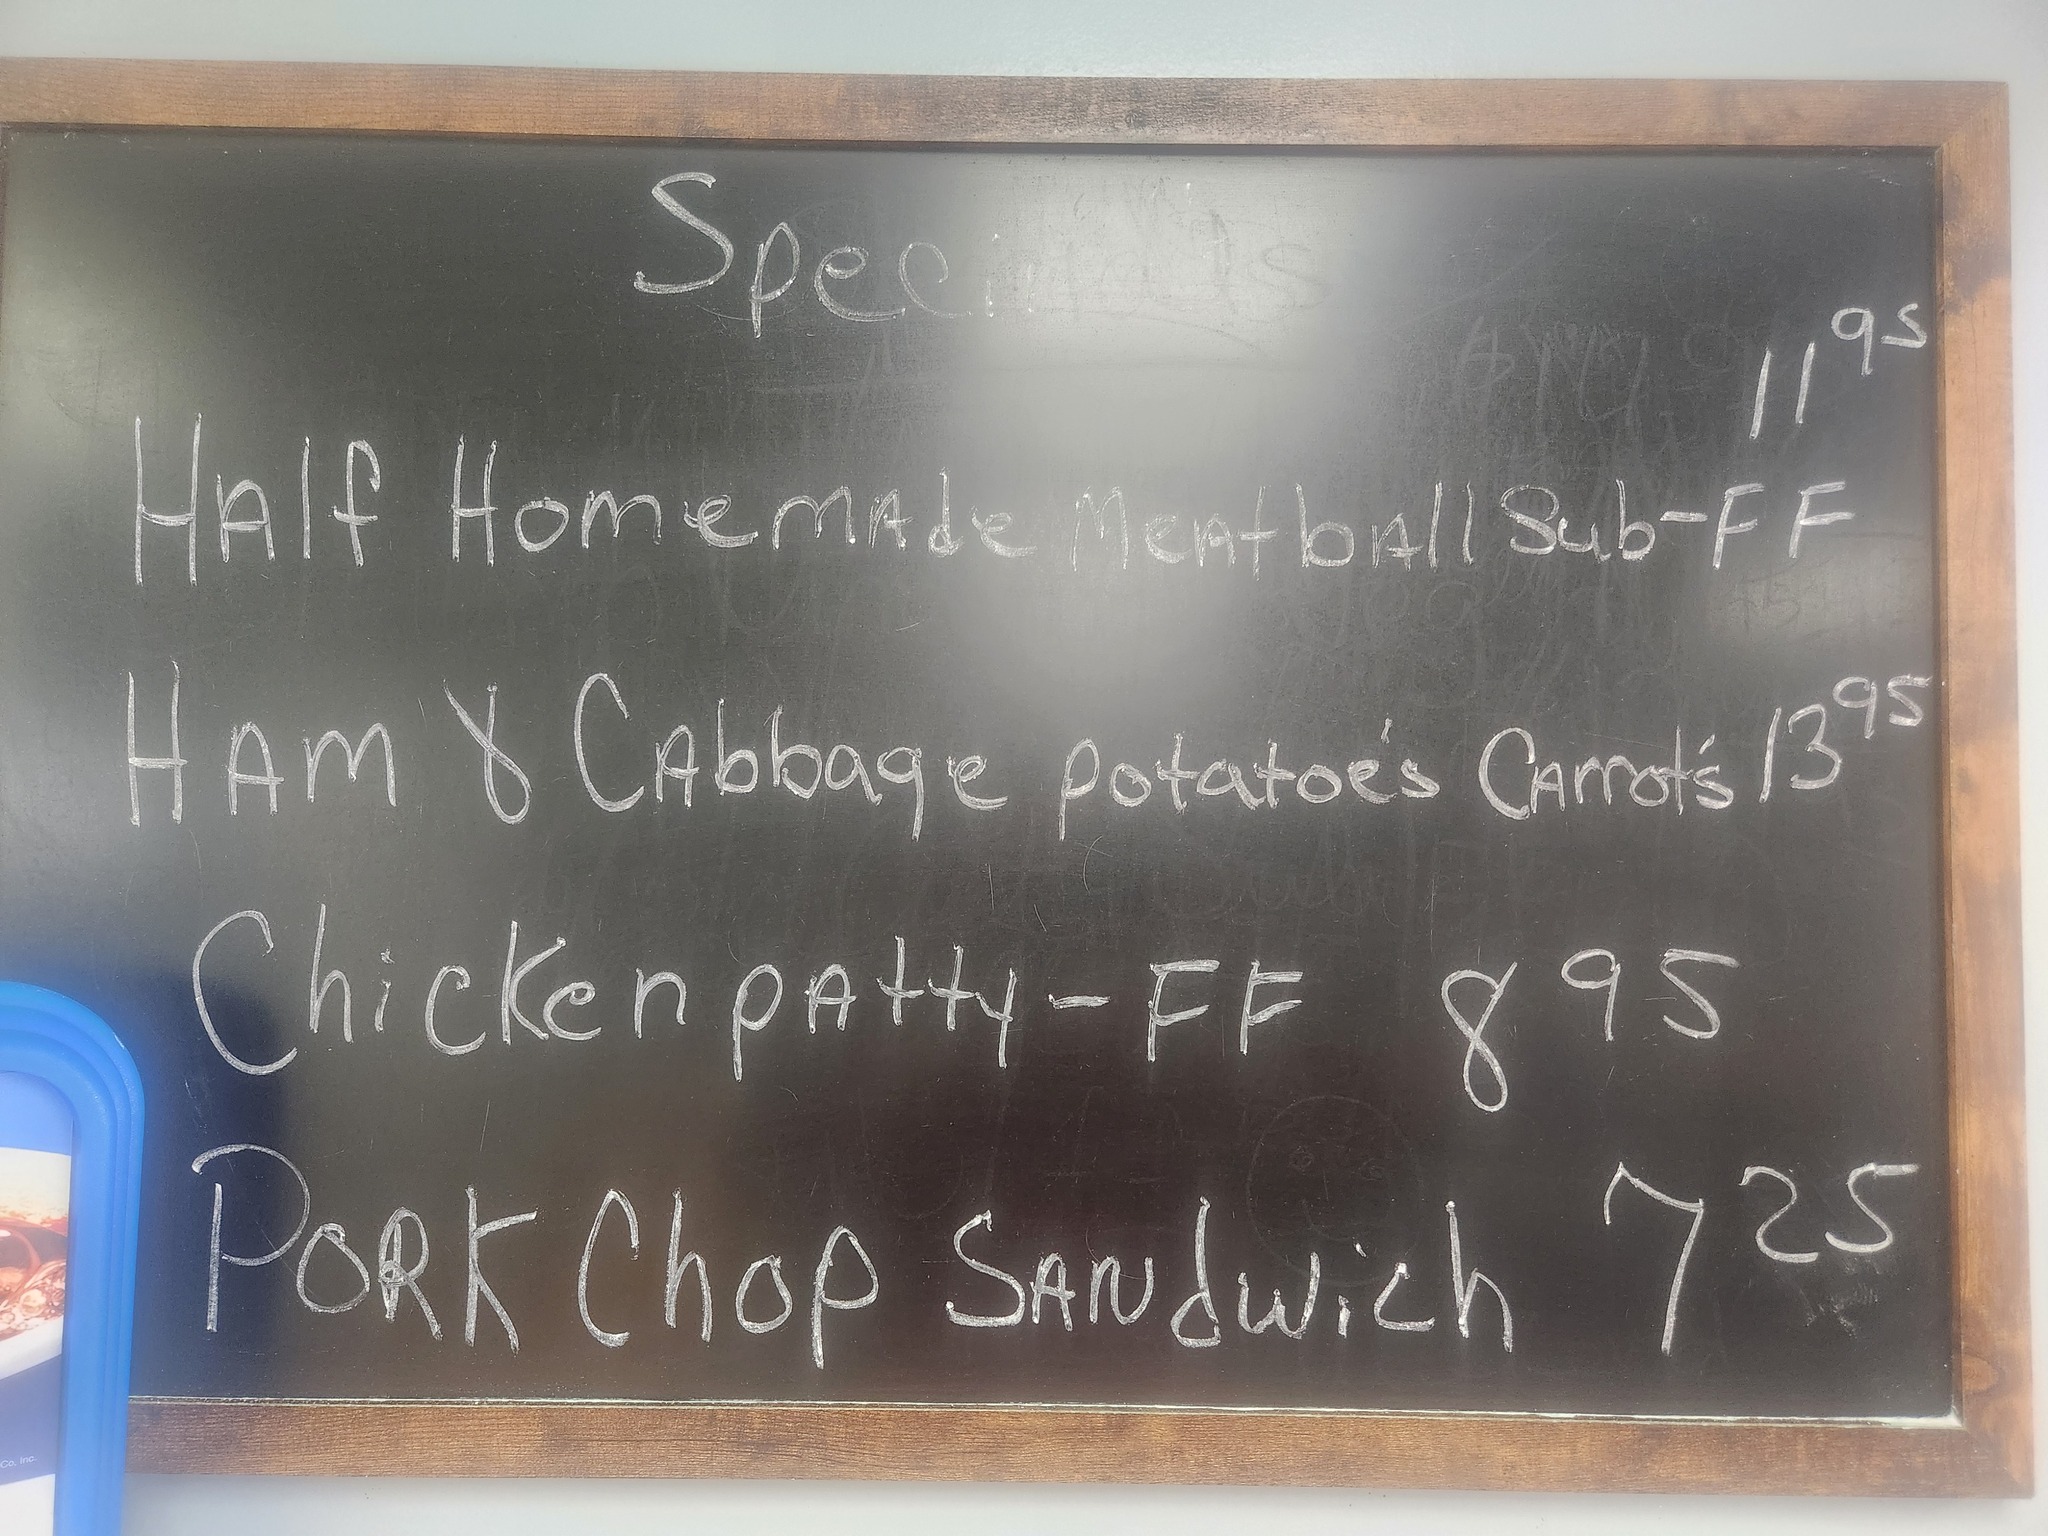 Specials
11 95
Half Homemade Meatball Sub-FF
Ham & Cabbage potatoe's Carrot's 13 95
Chicken patty-FF 8 95
Pork Chop Sandwich 7 25
Co, Inc.